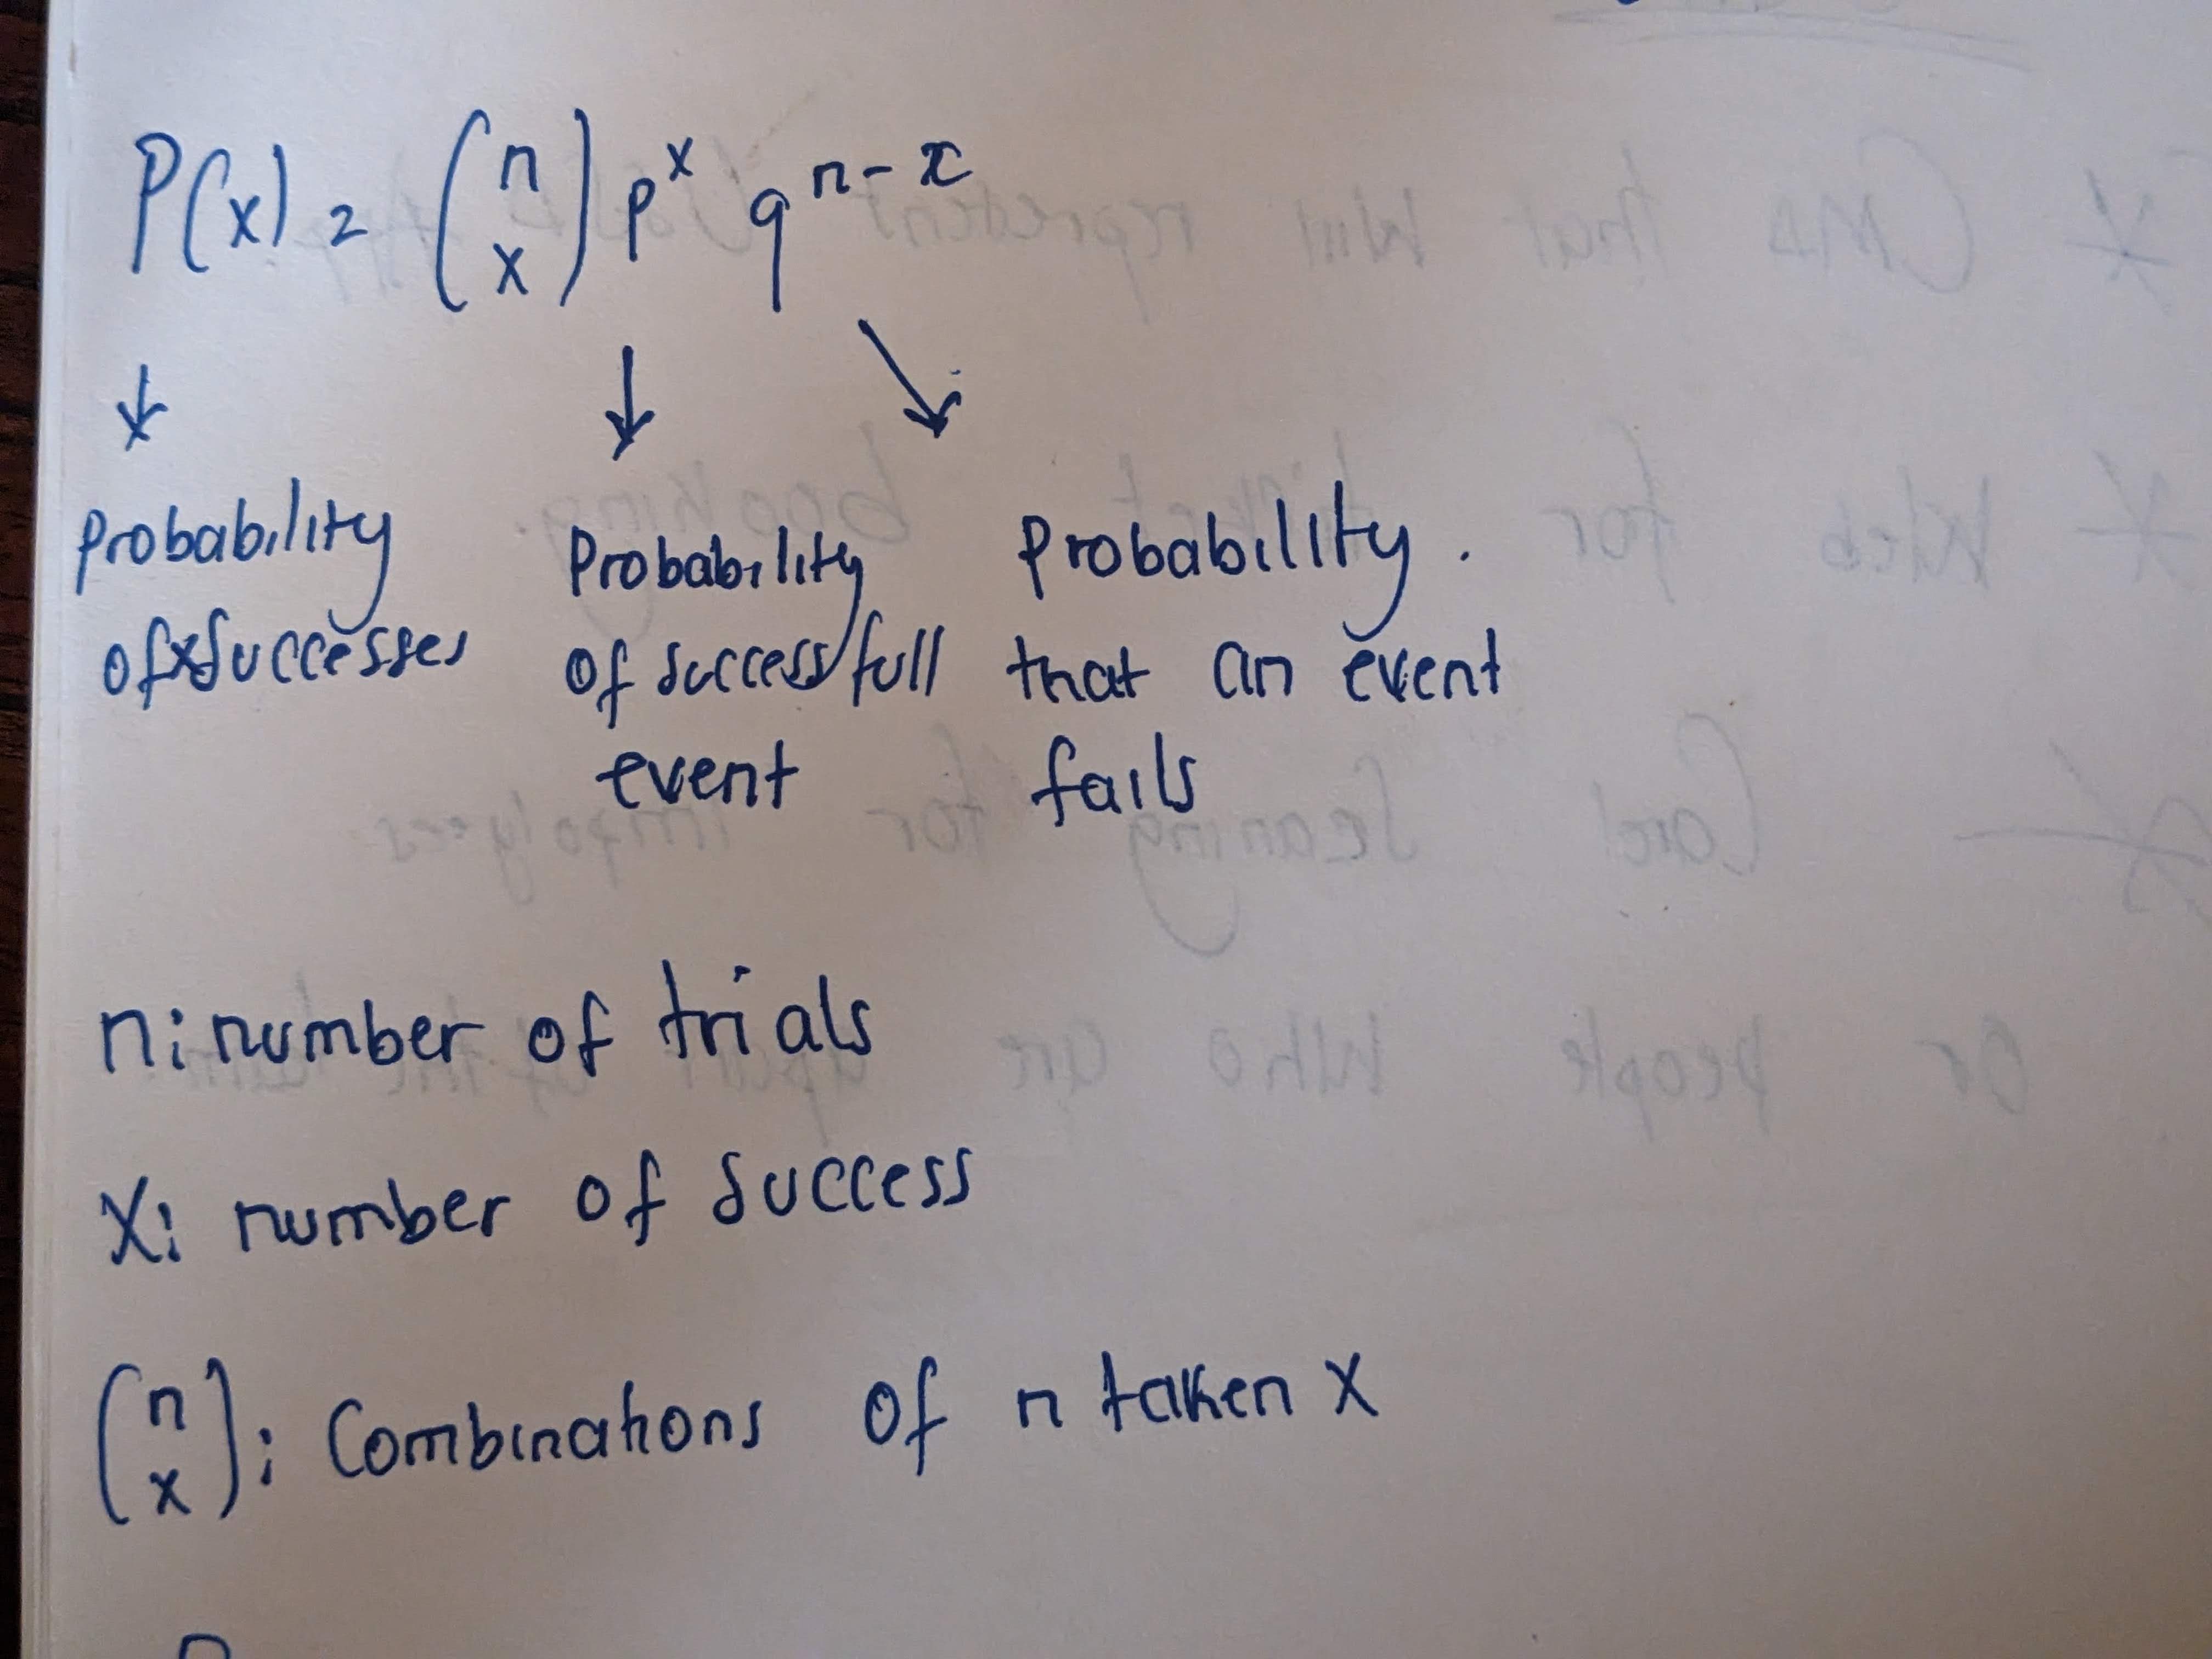 P(x) = (n x) p^x q^(n-x)
Probability of x successes
Probability of successfull event
Probability. that an event fails
n: number of trials
X: number of success
(n x): Combinations of n taken x